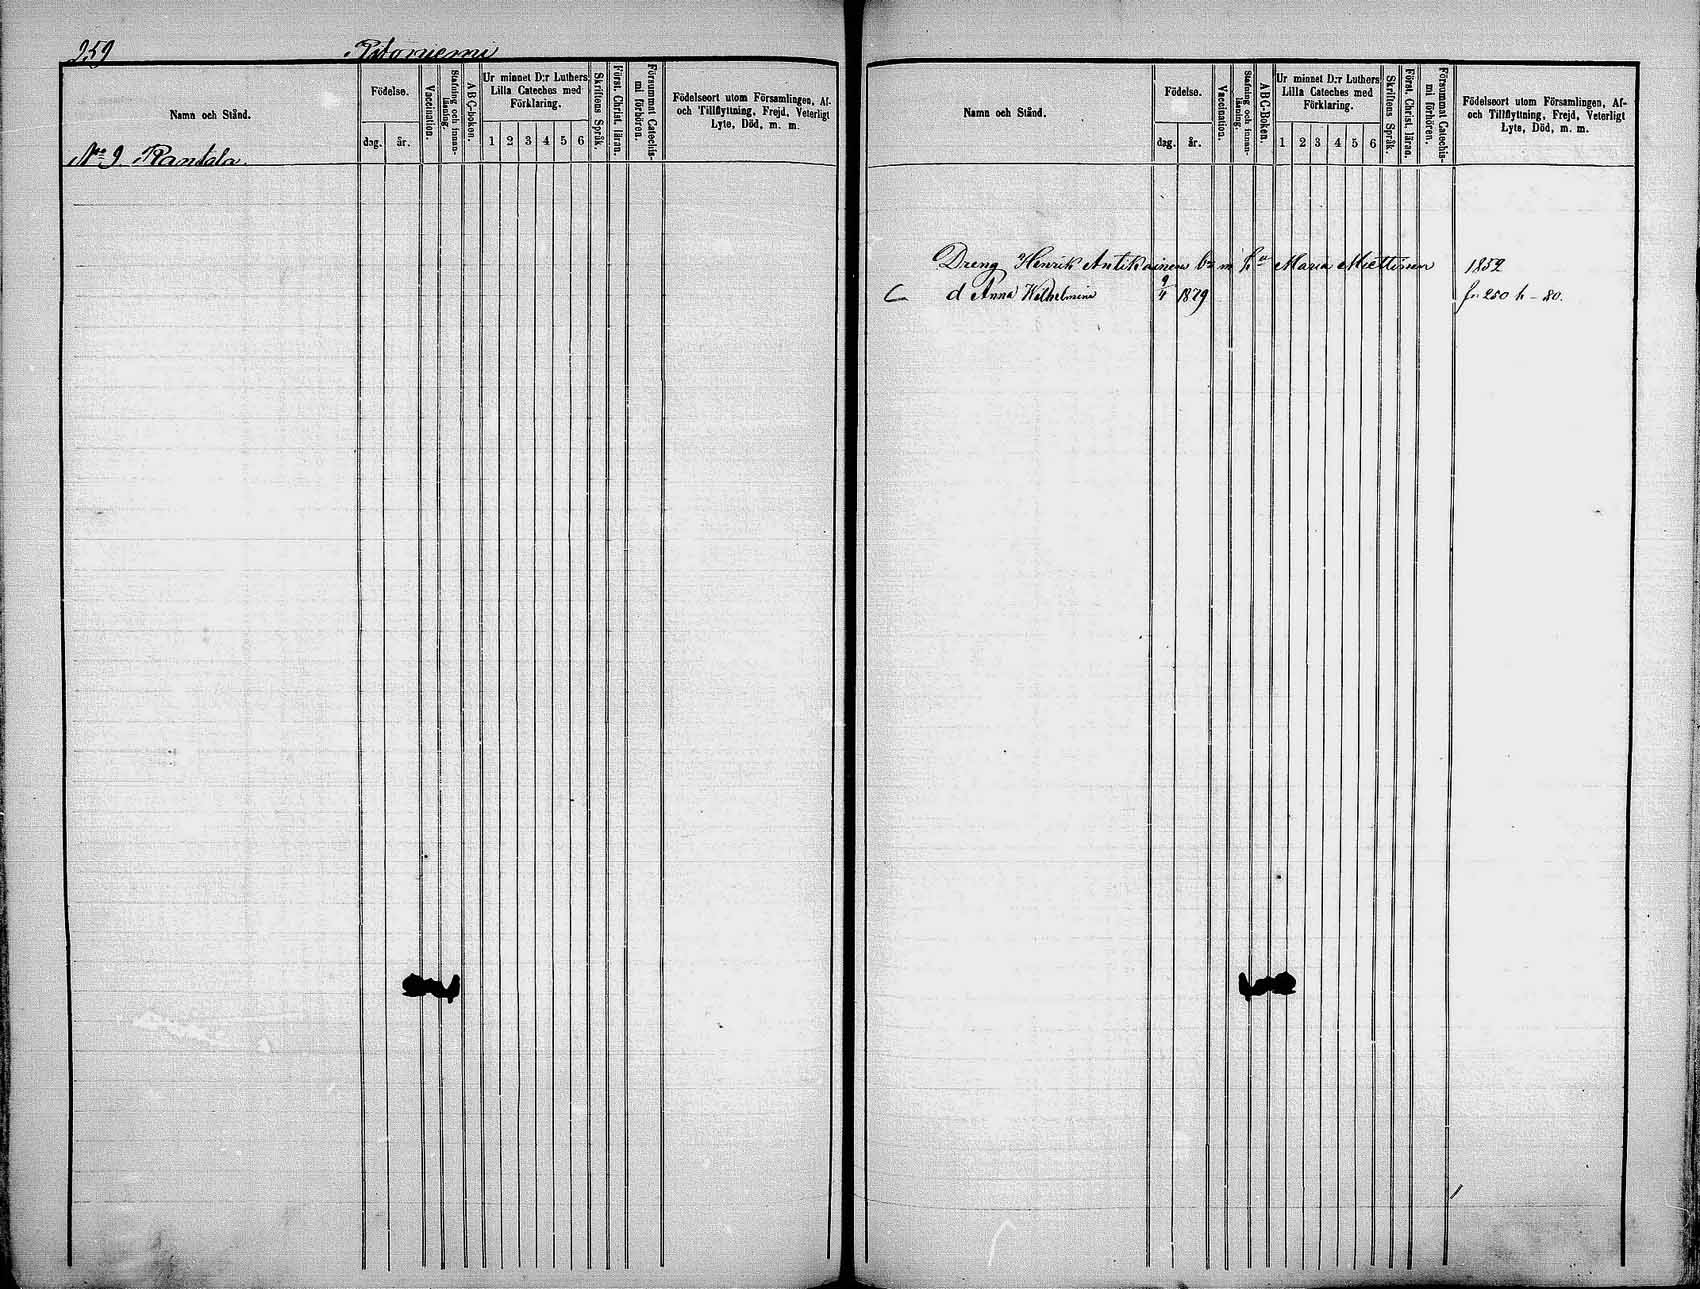 259 Pitoniemi
Namn och Stånd.
Födelse.
dag. år.
Vaccination.
Stafning och innanläsning.
ABC-Boken.
Ur minnet D:r Luthers Lilla Cateches med Förklaring.
1 2 3 4 5 6
Skriftens Språk.
Först. Christ. läran.
Försummat Catechismi förhören.
Födelseort utom Församlingen, Af- och Tillflyttning, Frejd, Veterligt Lyte, Död, m. m.
No 9 Rantala
Namn och Stånd.
Födelse.
dag. år.
Vaccination.
Stafning och innanläsning.
ABC-Boken.
Ur minnet D:r Luthers Lilla Cateches med Förklaring.
1 2 3 4 5 6
Skriftens Språk.
Först. Christ. läran.
Försummat Catechismi förhören.
Födelseort utom Församlingen, Af- och Tillflyttning, Frejd, Veterligt Lyte, Död, m. m.
Dreng Henrik Antikainen m Maria Miettinen 1852
d Anna Wilhelmina 9/4 1879 fr 250 h - 80.